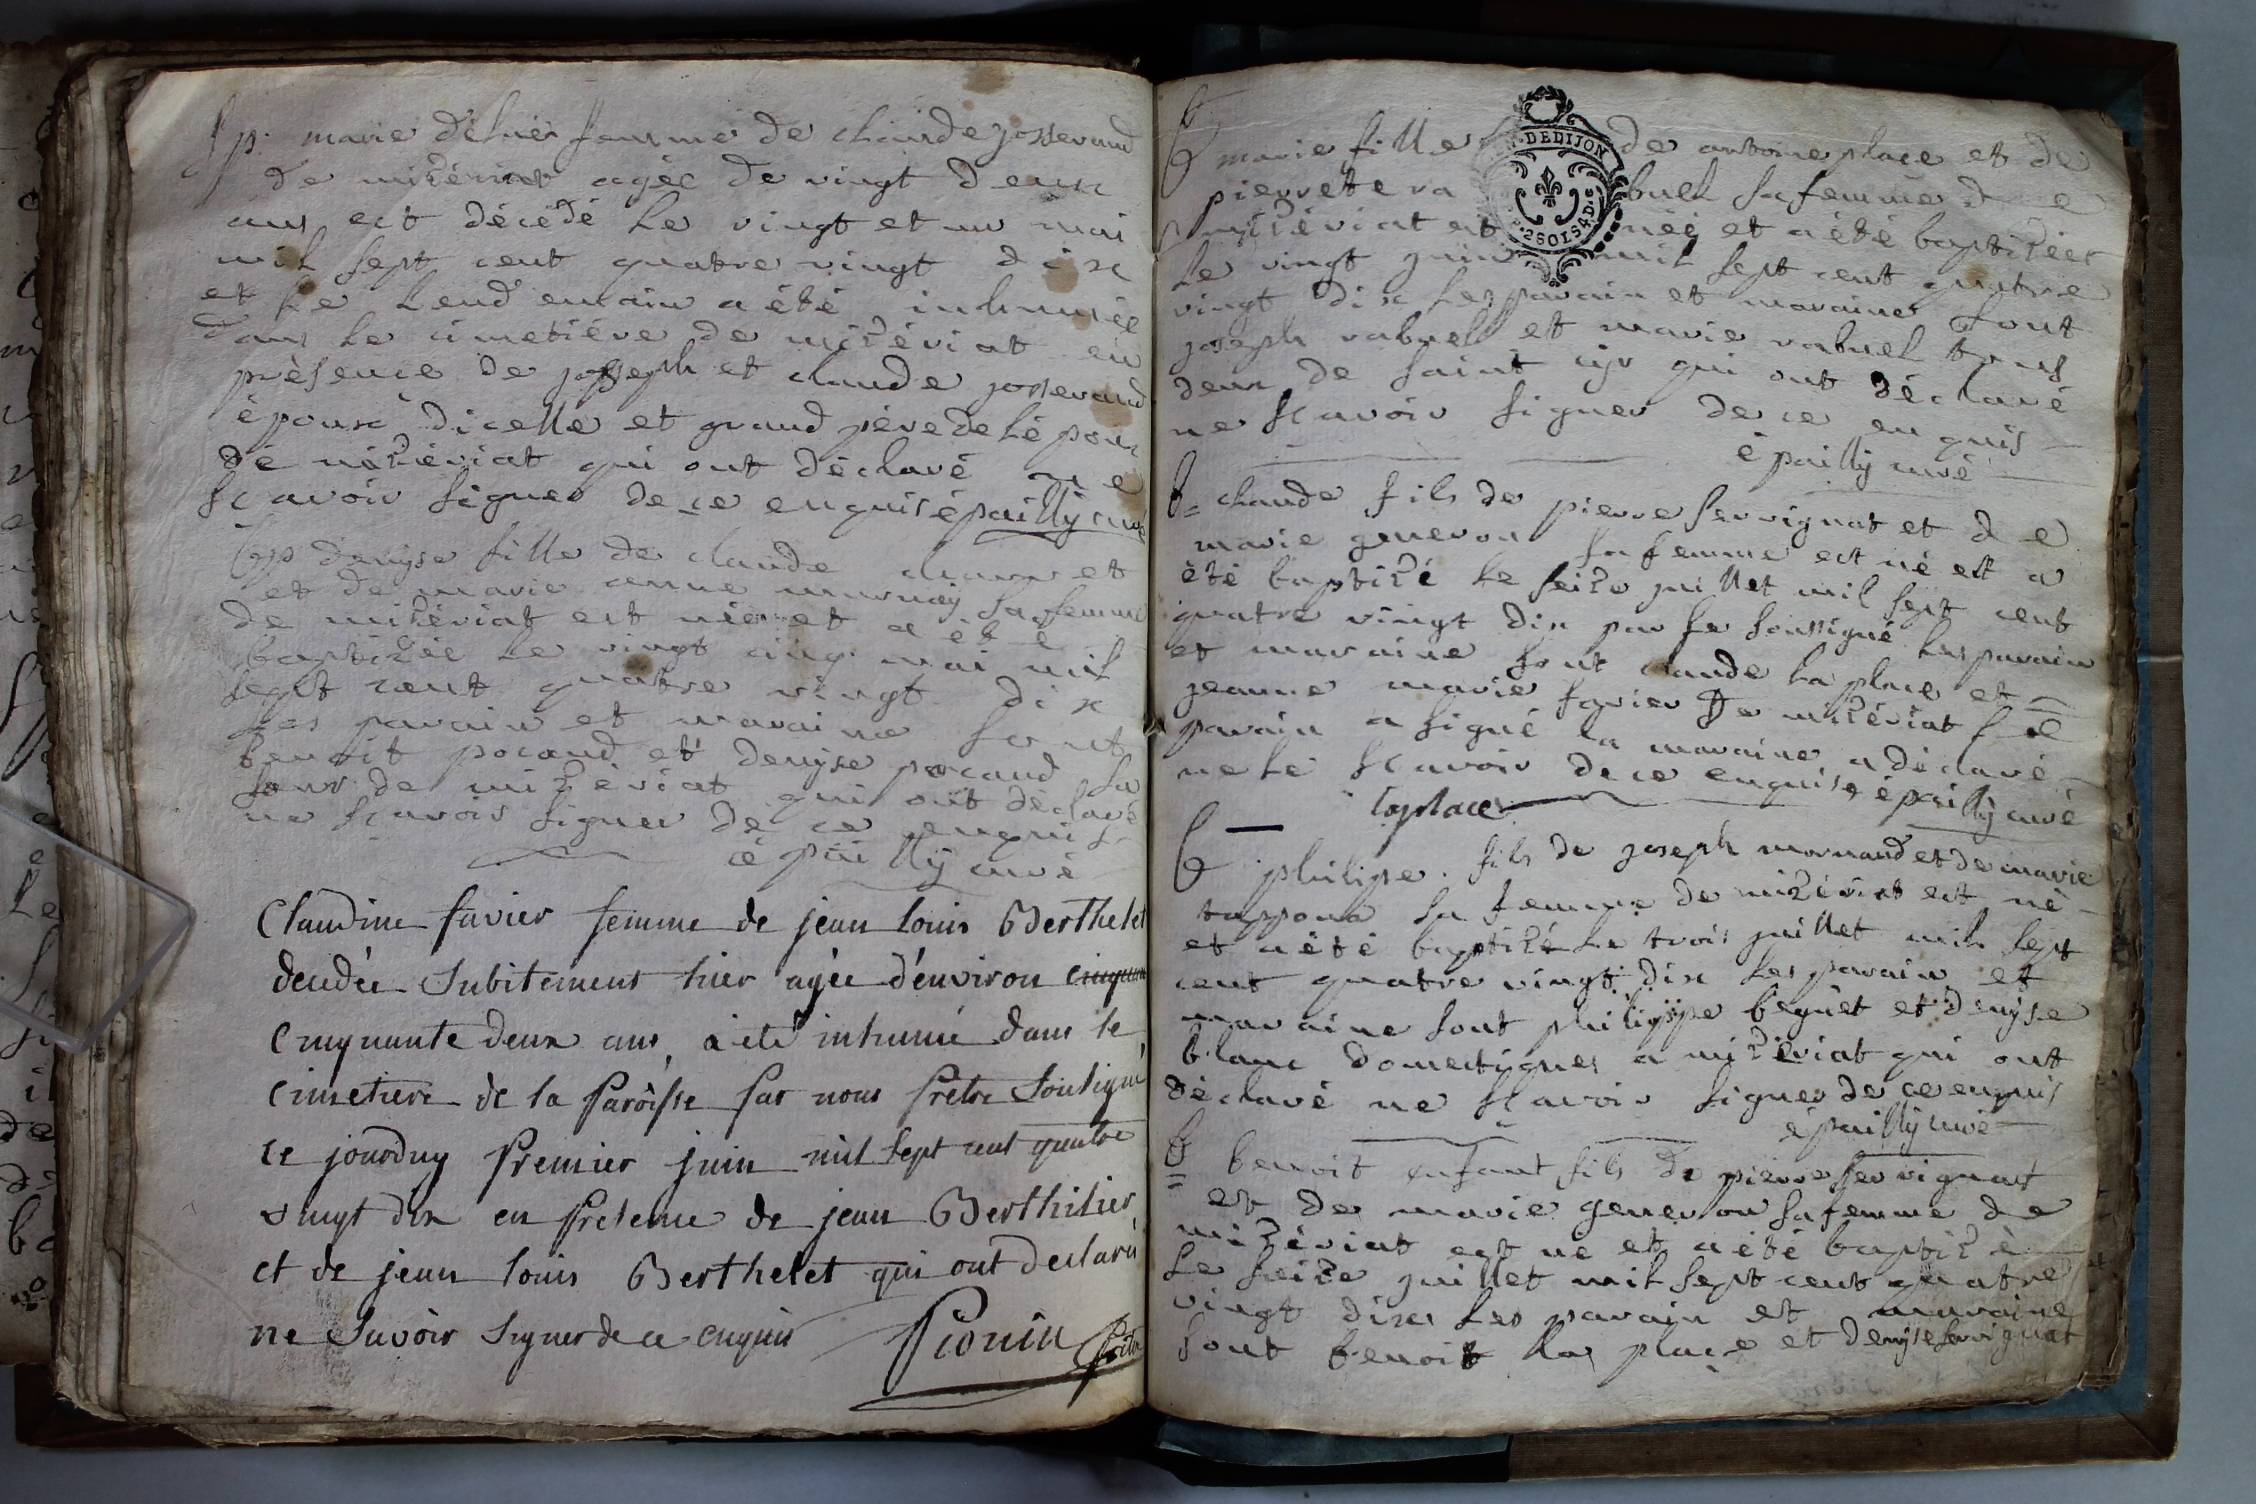 Sp. marie déhuér femme de claude josserand
de mizériat agée de vingt deux
ans est décédé le vingt et un mai
mil sept cent quatre vingt dix
et le lendemain a été inhumée
dans le cimetiére de mizériat en
présence de josseph et claude josserand
épouse dicelle et grand pére de lé poux
de mizériat qui ont déclaré ne
scavoir signer de ce enquis épailly curé
Bp denyse fille de claude et
et de marie anne sa femme
de mizériat est née et a été
baptizée le vingt cinq mai mil
sept cent quatre vingt dix
les parain et maraine sont
benoit pocaud et denyse pocaud sa
sœur de mizériat qui ont déclaré
ne scavoir signer de ce enquis
épailly curé
Claudine favier femme de jean louis Berthelet
decedée Subitement hier agée d'environ
Cinquante deux ans, a été inhumé dans le
Cimetiere de la Paroîsse par nous Prêtre Soussigné
ce jourduy Premier juin mil sept cent quatre
vingt dix en Presence de jean Berthilier
et de jean louis Berthelet qui ont declaré
ne Savoir Signer de ce enquis Pionin Prêtre
B marie fille de antoine place et de
pierrete ra buel sa femme de
mizériat est née et a été baptizéer
le vingt juin mil sept cent quatre
vingt dix les parain et maraine sont
joseph rabuel et marie rabuel tous
deux de saint cyr qui ont déclaré
ne scavoir signer de ce enquis
épailly curé
B= claude fils de pierre servignat et de
marie generon sa femme est né et a
été baptizé le seize juillet mil sept cent
quatre vingt dix par Le soussigné les parain
et maraine sont claude la place et
jeanne marie favier de mizériat le
parain a signé la maraine a déclaré
ne le scavoir de ce enquise épailly curé
laplace
B philipe. fils de joseph mornand et de marie
tappona sa femme de mizériat est né
et a été baptizé le trois juillet mil sept
cent quatre vingt dix les parain et
maraine sont philippe beguet et denyse
blanc domestiques a mizériat qui ont
déclaré ne scavoir signer de ce enquis
épailly curé
B= benoit enfant fils de pierre servignat
et de marie generon sa femme de
mizériat est ne et a été baptizé
le seize juillet mil sept cent quatre
vingt dix les parain et maraine
sont benoit la place et denyse servignat
DEDIJON
2SOLS4D.